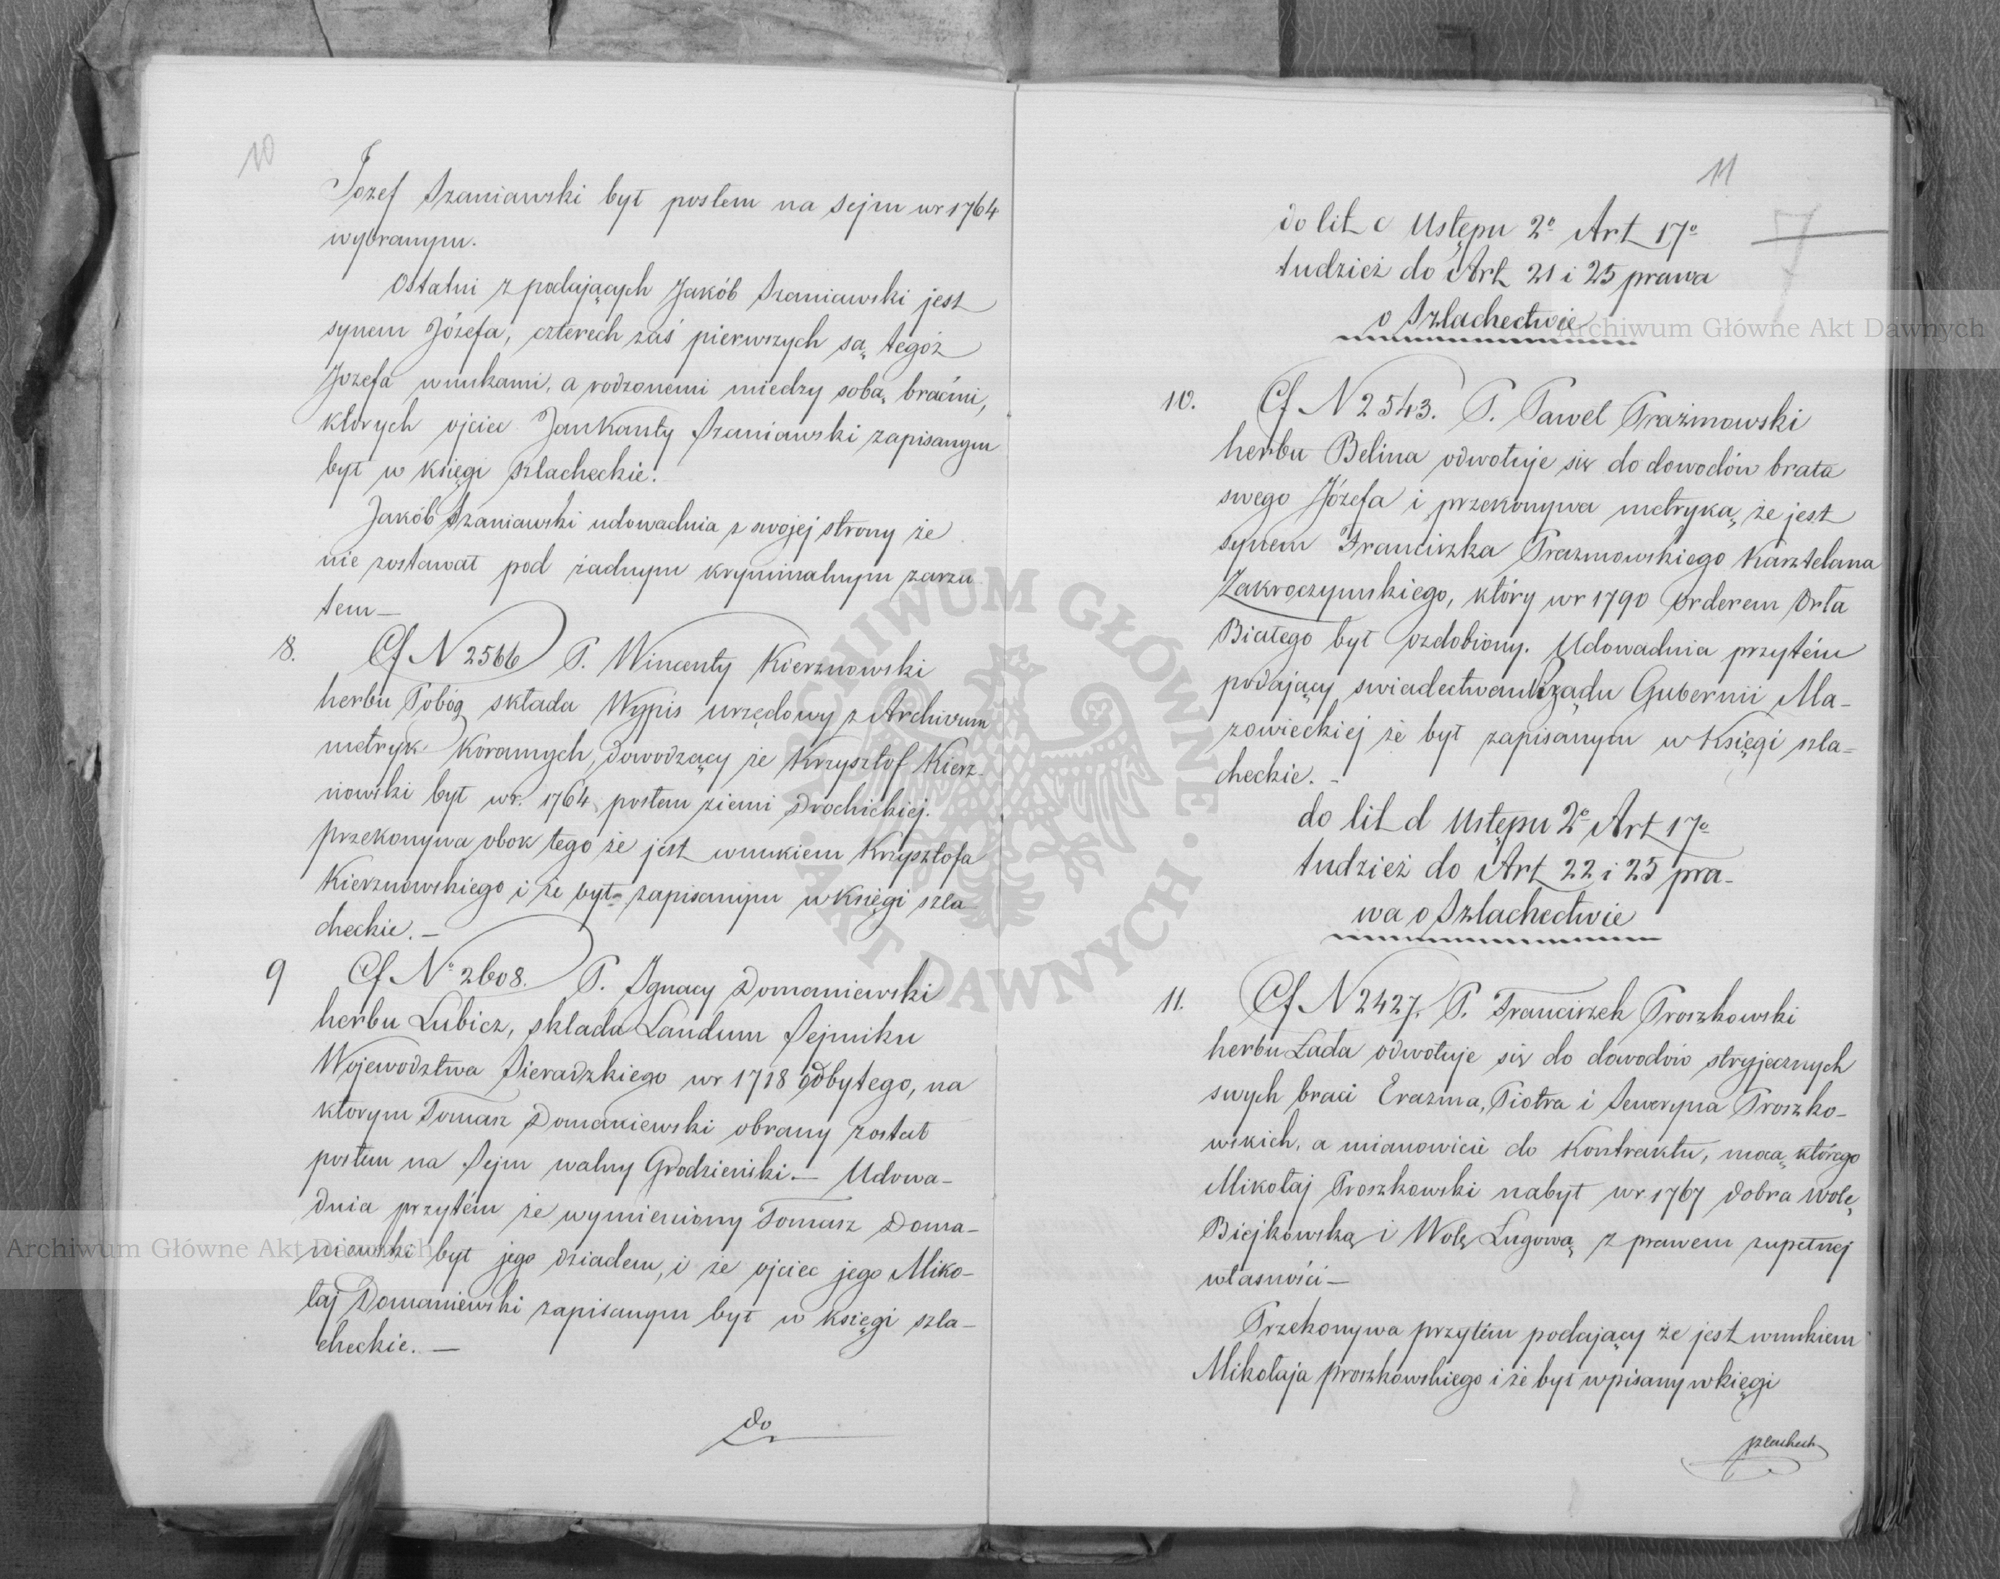 10
Jozef Szaniawski był posłem na Sejm w r 1764
wybranym.
Ostatni z podających Jakób Szaniawski jest
synem Józefa, czterech zaś pierwszych są tegoż
Jozefa wnukami, a rodzonemi miedzy sobą braćmi,
których ojciec Jan Kanty Szaniawski zapisanym
był w księgi szlacheckie.
Jakób Szaniawski udowadnia z swojej strony że
nie zostawał pod żadnym kryminalnym zarzu
tem —
8. Cf N 2566 P. Wincenty Kierznowski
herbu Pobóg składa Wypis urzędowy z Archivum
metryk Koronnych, dowodzący że Krzysztof Kierz-
nowski był w r. 1764 posłem ziemi Drochickiej.
przekonywa obok tego że jest wnukiem Krzysztofa
Kierznowskiego i że był zapisanym w księgi szla
checkie. —
9 Cf Nº 2608. P. Ignacy Domaniewski
herbu Lubicz, składa Laudum Sejmiku
Wojewodztwa Sieradzkiego w r 1718 odbytego, na
ktorym Tomasz Domaniewski obrany został
posłem na Sejm walny Grodzieński. — Udowa-
dnia przytém że wymieniony Tomasz Doma-
niewski był jego dziadem, i że ojciec jego Miko-
łaj Domaniewski zapisanym był w księgi szla-
checkie. —
do
11
do lit c Ustępu 2º Art 17º
tudzież do Art 21 i 25 prawa
o Szlachectwie
10. Cf N 2543. P. Paweł Prażmowski
herbu Belina odwołuje się do dowodów brata
swego Józefa i przekonywa metryką, że jest
synem Franciszka Prazmowskiego Kasztelana
Zakroczymskiego, który w r 1790 Orderem Orła
Białego był ozdobiony. Udowadnia przytém
podający swiadectwem Rządu Gubernii Ma-
zowieckiej że był zapisanym w Księgi szla-
checkie. —
do lit d Ustępu 2º Art 17º
tudzież do Art 22 i 25 pra-
wa o Szlachectwie
11. Cf N 2427. P. Franciszek Proszkowski
herbu Łada odwołuje się do dowodów stryjecznych
swych braci Erazma, Piotra i Seweryna Proszko-
wskich, a mianowicie do Kontraktu, mocą którego
Mikołaj Proszkowski nabył w r 1767 dobra Wolę
Biejkowską i Wolę Ługową z prawem zupełnej
własności —
Przekonywa przytém podający że jest wnukiem
Mikołaja Proszkowskiego i że był wpisany w księgi
szlacheck
Archiwum Główne Akt Dawnych
Archiwum Główne Akt Dawnych
ARCHIWUM GŁÓWNE · AKT DAWNYCH ·